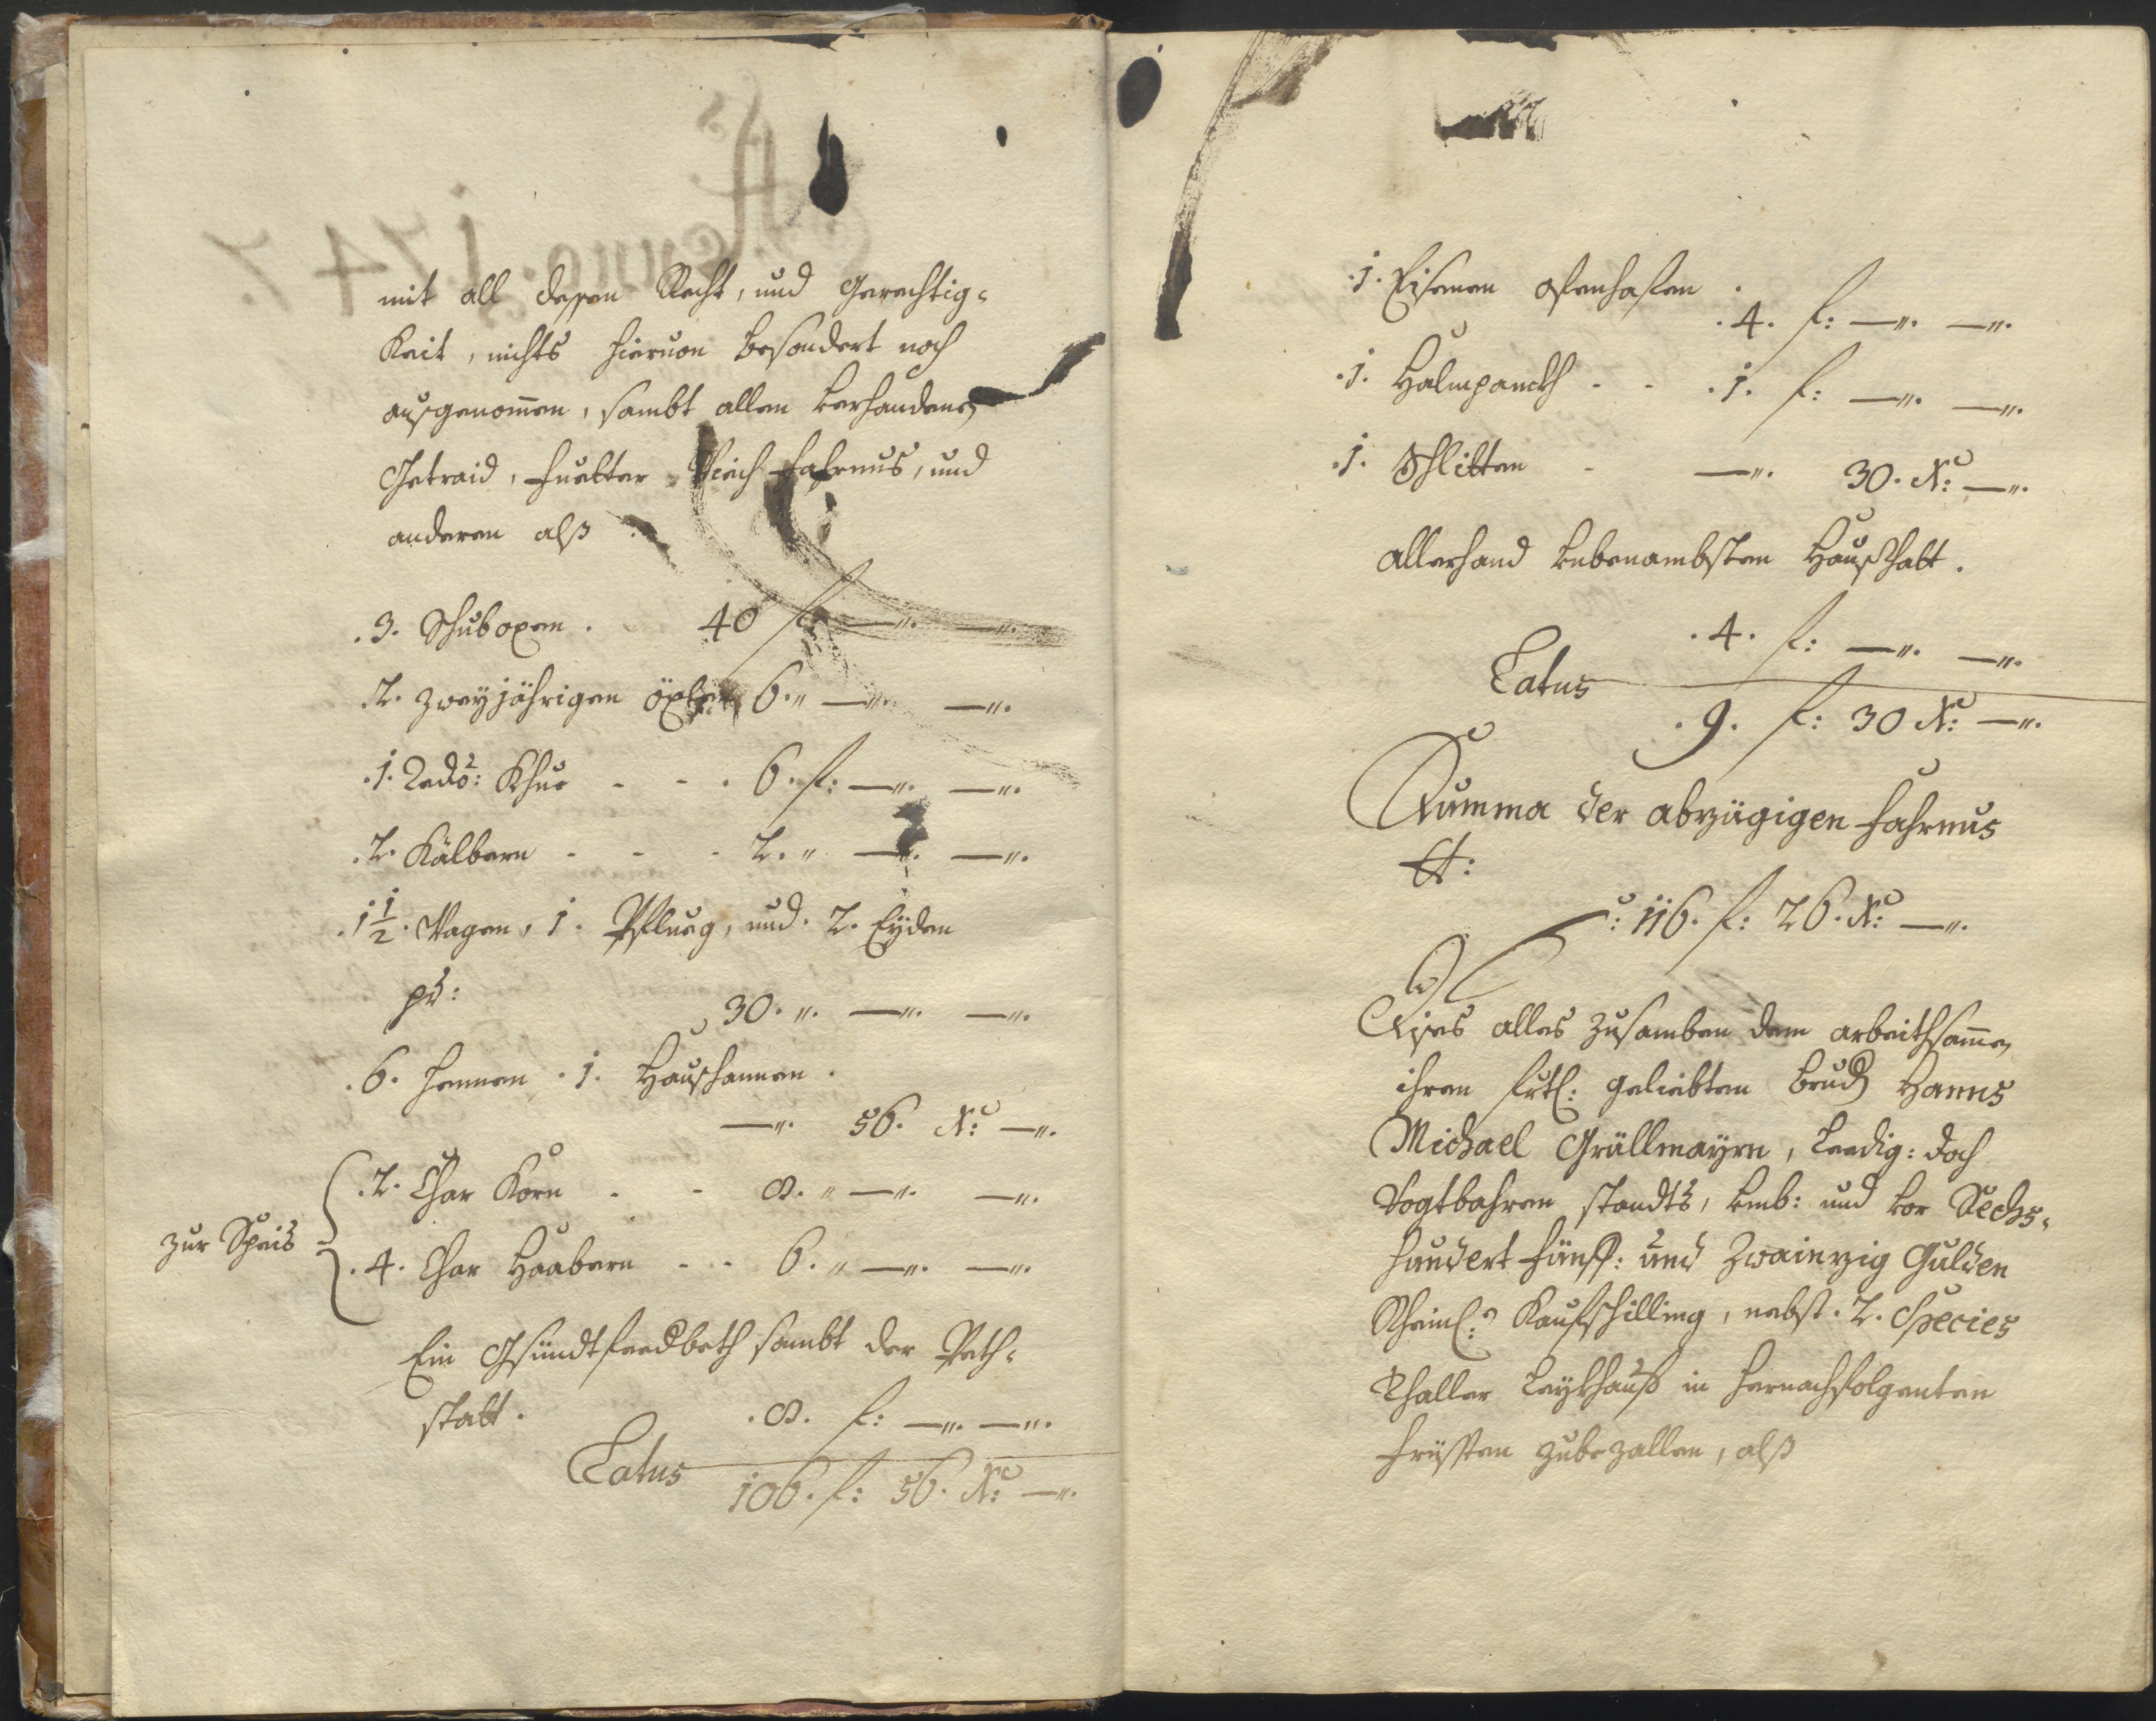 mit all dessen Recht, und Gerechtig-
keit, nichts hieruon besondert noch
ausgenom̄en, sambt allen verhandenen
Getraid, Fuetter Viech Fahrnus, und
anderen alß
.3. Schuboxen. 40 f: —".  —".
.2. zweyjährigen öxlen 6." —".  —".
.1. Redo: Khue - - . 6. f: —". —".
.2. Kälbern - - - 2. " —". —".
.1 1/2. Wagen, 1. Pflueg, und. 2. Eyden
pr:
30. ". —". —".
.6. Hennen .1. Haushannen.
—". 56. Xr: —".
zur Speis
.2. Char Korn - - 8. " —". —".
.4. Char Haabern - - 6. " —". —".
Ein Gsindtfeedbeth sambt der Peth-
statt. .8. f: —". —".
Latus 106. f: 56. Xr: —".
.1. Eisenen ofenhafen .
.4. f: —". —".
.1. Halmpanckh - - .1. f: —". —".
.1. Schlitten - —". 30. Xr: —".
allerhand unbenambsten Haußhatt.
.4. f: —". —".
Latus
.9. f: 30 Xr: —".
Summa der abzügigen Fahrnus
et:
: 116. f: 26. Xr: —".
Dises alles zusamben dem arbeithsam̄en
ihren frtl: geliebten Brudern Hanns
Michael Grällmayrn, leedig: doch
Vogtbahren standts, umb: und vor Sechs-
hundert Fünff: und Zwainzig Gulden
Rheinl: Kaufschilling, nebst. 2. Species
Thaller Leykhauß in hernachfolgenten
Früssten zubezallen, alß